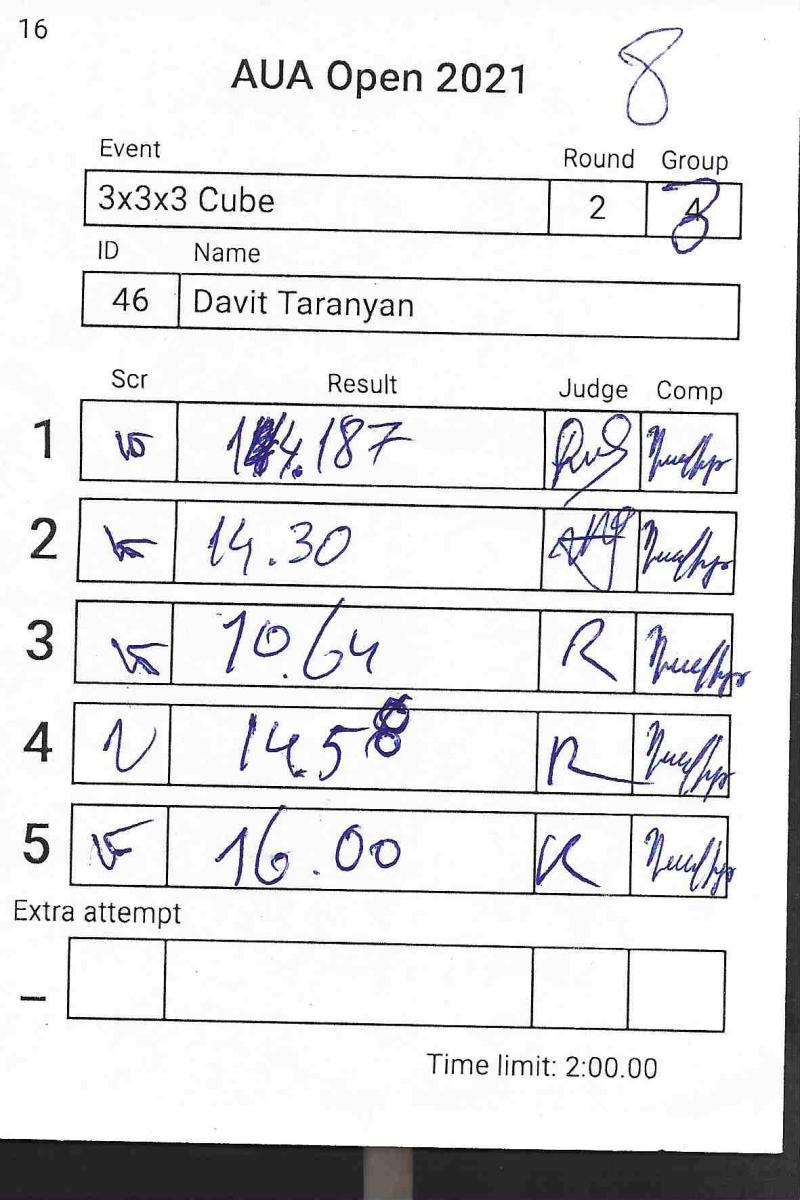 16
AUA Open 2021
8
Event Round Group
3x3x3 Cube 2 3
ID Name
46 Davit Taranyan
Scr Result Judge Comp
1 14.187
2 14.30
3 10.64 R
4 14.58 R
5 16.00 R
Extra attempt
_
Time limit: 2:00.00